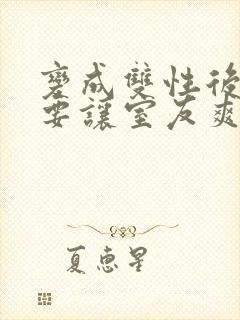 變成雙性後
要讓室友爽
夏惠星